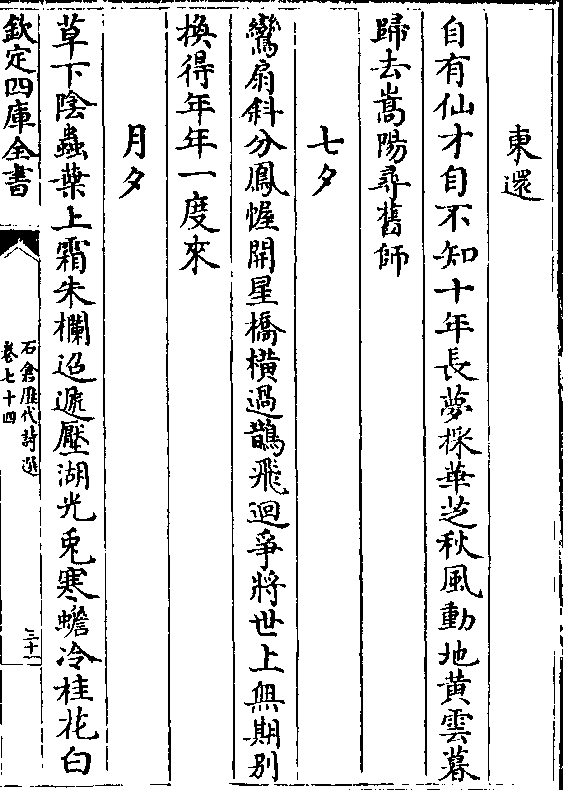 東還
自有仙才自不知十年長夢採華芝秋風動地黄雲暮
歸去嵩陽尋舊師
七夕
鸞扇斜分鳳幄開星橋橫過鵲飛迴爭將世上無期別
換得年年一度來
月夕
草下陰蟲葉上霜朱欄迢遞壓湖光兎寒蟾冷桂花白
欽定四庫全書
石倉歴代詩選
卷七十四
三十一